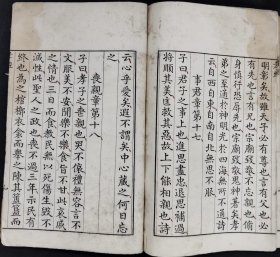 明彰矣故雖天子必有尊也言有父也必
有先也言有兄也宗廟致敬不忘親也修
身慎行恐辱先也宗廟致敬鬼神著矣孝
弟之至通於神明光於四海無所不通詩
云自西自東自南自北無思不服
事君章第十七
子曰君子之事上也進思盡忠退思補過
將順其美匡救其惡故上下能相親也詩
云心乎愛矣遐不謂矣中心藏之何日忘
之
喪親章第十八
子曰孝子之喪親也哭不偯禮無容言不
文服美不安聞樂不樂食旨不甘此哀慼
之情也三日而食教民無以死傷生毀不
滅性此聖人之政也喪不過三年示民有
終也為之棺槨衣衾而舉之陳其簠簋而